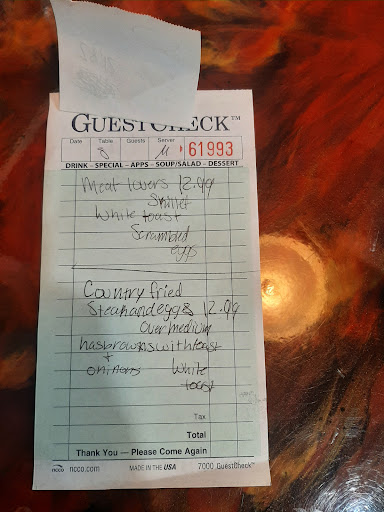 GUESTCHECK™
Date Table Guests Server
8 M 61993
DRINK – SPECIAL – APPS – SOUP/SALAD – DESSERT
Meat lovers 12.99
Skillet
White toast
Scrambled
eggs
Country fried
Steak and eggs 12.99
Over medium
hasbrowns with toast
+
onions White
toast
Tax
Total
Thank You — Please Come Again
ncco ncco.com MADE IN THE USA 7000 GuestCheck™